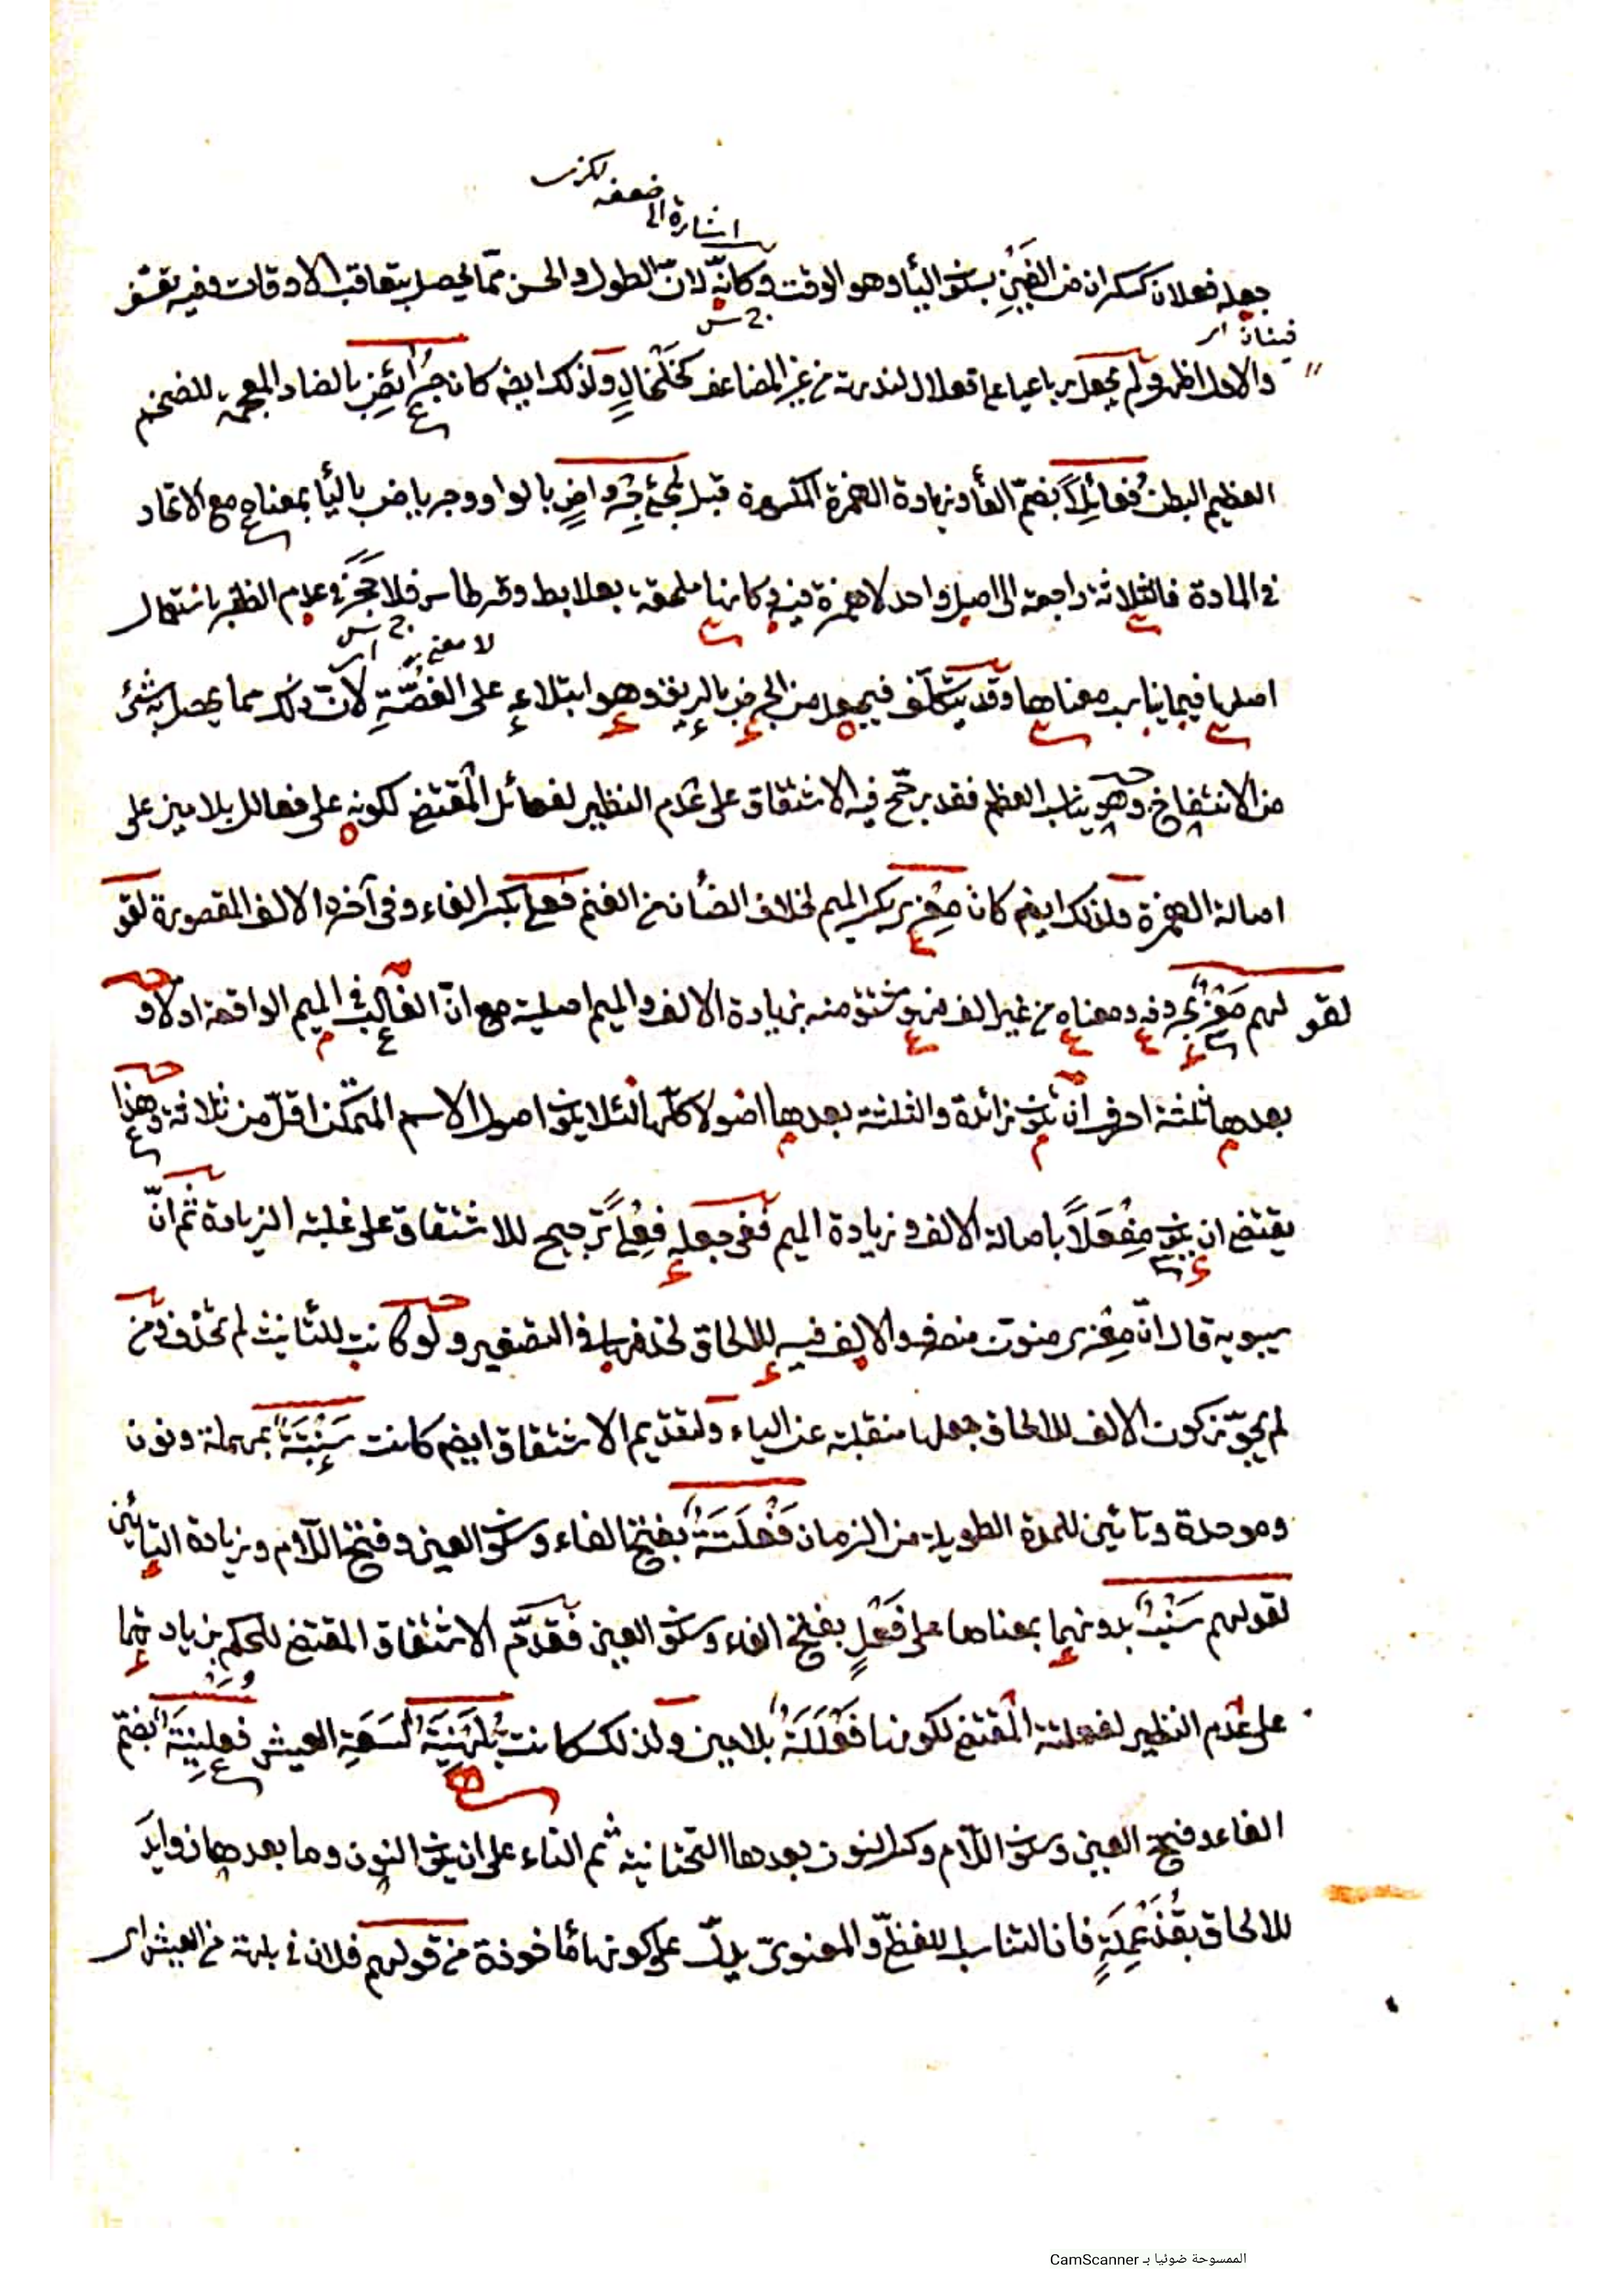 لكن
ضعفه
اشارة الى
جعله فعلان كسكران من الفَيْنِ بسكون الياء وهو الوقت وكانّه لانّ الطول والحسن ممّا يحصل بتعاقب الاوقات وفيه تعسّف
فينان
والاول اظهر ولم يجعل رباعيا على فعلال لندرته من غير المضاعف كخَلْخالٍ ولذلك ايضا كان جُرائِضٌ بالضاد المعجمة للضخم
العظيم البطن فُعائِلاً بضمّ الفاء وزيادة الهمزة المكسورة قبل لمجئ جِرْواضٍ بالواو وجرياض بالياء بمعناه مع الاتحاد
فى المادة فالثلاثة راجعة الى اصل واحد لا همزة فيه وكانها ملحقة بعلابط وقرطاس فلا حَجَرَ فى عدم الظفر باستعمال
لا معنى
اصلها فيما يناسب معناها وقد يتكلّف فيجعل من الجرض بالريق وهو ابتلاعه على الغصّة لانّ ذلك مما يحصل به شئ
من الانتفاخ وهو يناسب العظم فقد رجّح فيه الاشتقاق على عدم النظير لفعائل المقتضى لكونه على فعالل بلامين على
اصالة الهمزة ولذلك ايضا كان مِعْزى بكسر الميم لخلاف الضأن من الغنم فِعلى بكسر الفاء وفى آخره الالف المقصورة لقو
لقولهم مَعْزٌ بحروفه ومعناه من غير الف فهو مشتق منه بزيادة الالف والميم اصلية مع انّ الغالب فى الميم الواقعة اولا و
بعدها ثلثة احرف ان يكون زائدة والثلثة بعدها اصولا كلّها لئلا يكون اصول الاسم المتمكن اقلّ من ثلاثة وهذا
يقتضى ان يكون مِفْعَلاً باصالة الالف وزيادة الميم ففى جعله فِعْلى ترجيح للاشتقاق على غلبة الزيادة ثم انّ
سيبويه قال انّ مِعْزى منون منصرف والالف فيه للالحاق لحذفها فى التصغير ولو كانت للتأنيث لم تحذف ومن
لم يجوّز كون الالف للالحاق جعلها منقلبة عن الياء ولتقديم الاشتقاق ايضا كانت سَنْبَتَةٌ بمهملة ونون
وموحدة وتائين للمدة الطويلة من الزمان فَعْلَتَةً بفتح الفاء وسكون العين وفتح اللام وزيادة التائين
لقولهم سَنْبٌ بدونهما بمعناها على فَعْلٍ بفتح الفاء وسكون العين فقدّم الاشتقاق المقتضى للحكم بزيادتهما
على عدم النظير لفعلتة المقتضى لكونها فَعْلَلَةً بلامين ولذلك كانت بُلَهْنِيَةٌ لسَعَةِ العيش فُعَلْنِيَةً بضمّ
الفاء وفتح العين وسكون اللام وكسر النون بعدها التحتانية ثم التاء على ان يكون النون وما بعدها زوايد
للالحاق بقُذَعْمِلَةٍ فان التناسب اللفظىّ والمعنوىّ يدلّ على كونها مأخوذة من قولهم فلان فى بلهة من العيش اى
الممسوحة ضوئيا بـ CamScanner